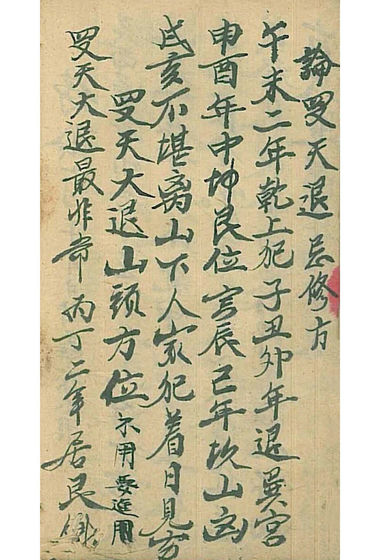 論罗天退忌修方
午未二年乾上犯子丑卯年退巽宫
申酉年中坤艮位言辰巳年坎山凶
戌亥不堪离山下人家犯着日見穷
罗天大退山頭方位不用要進用
罗天大退最非常丙丁二年居艮